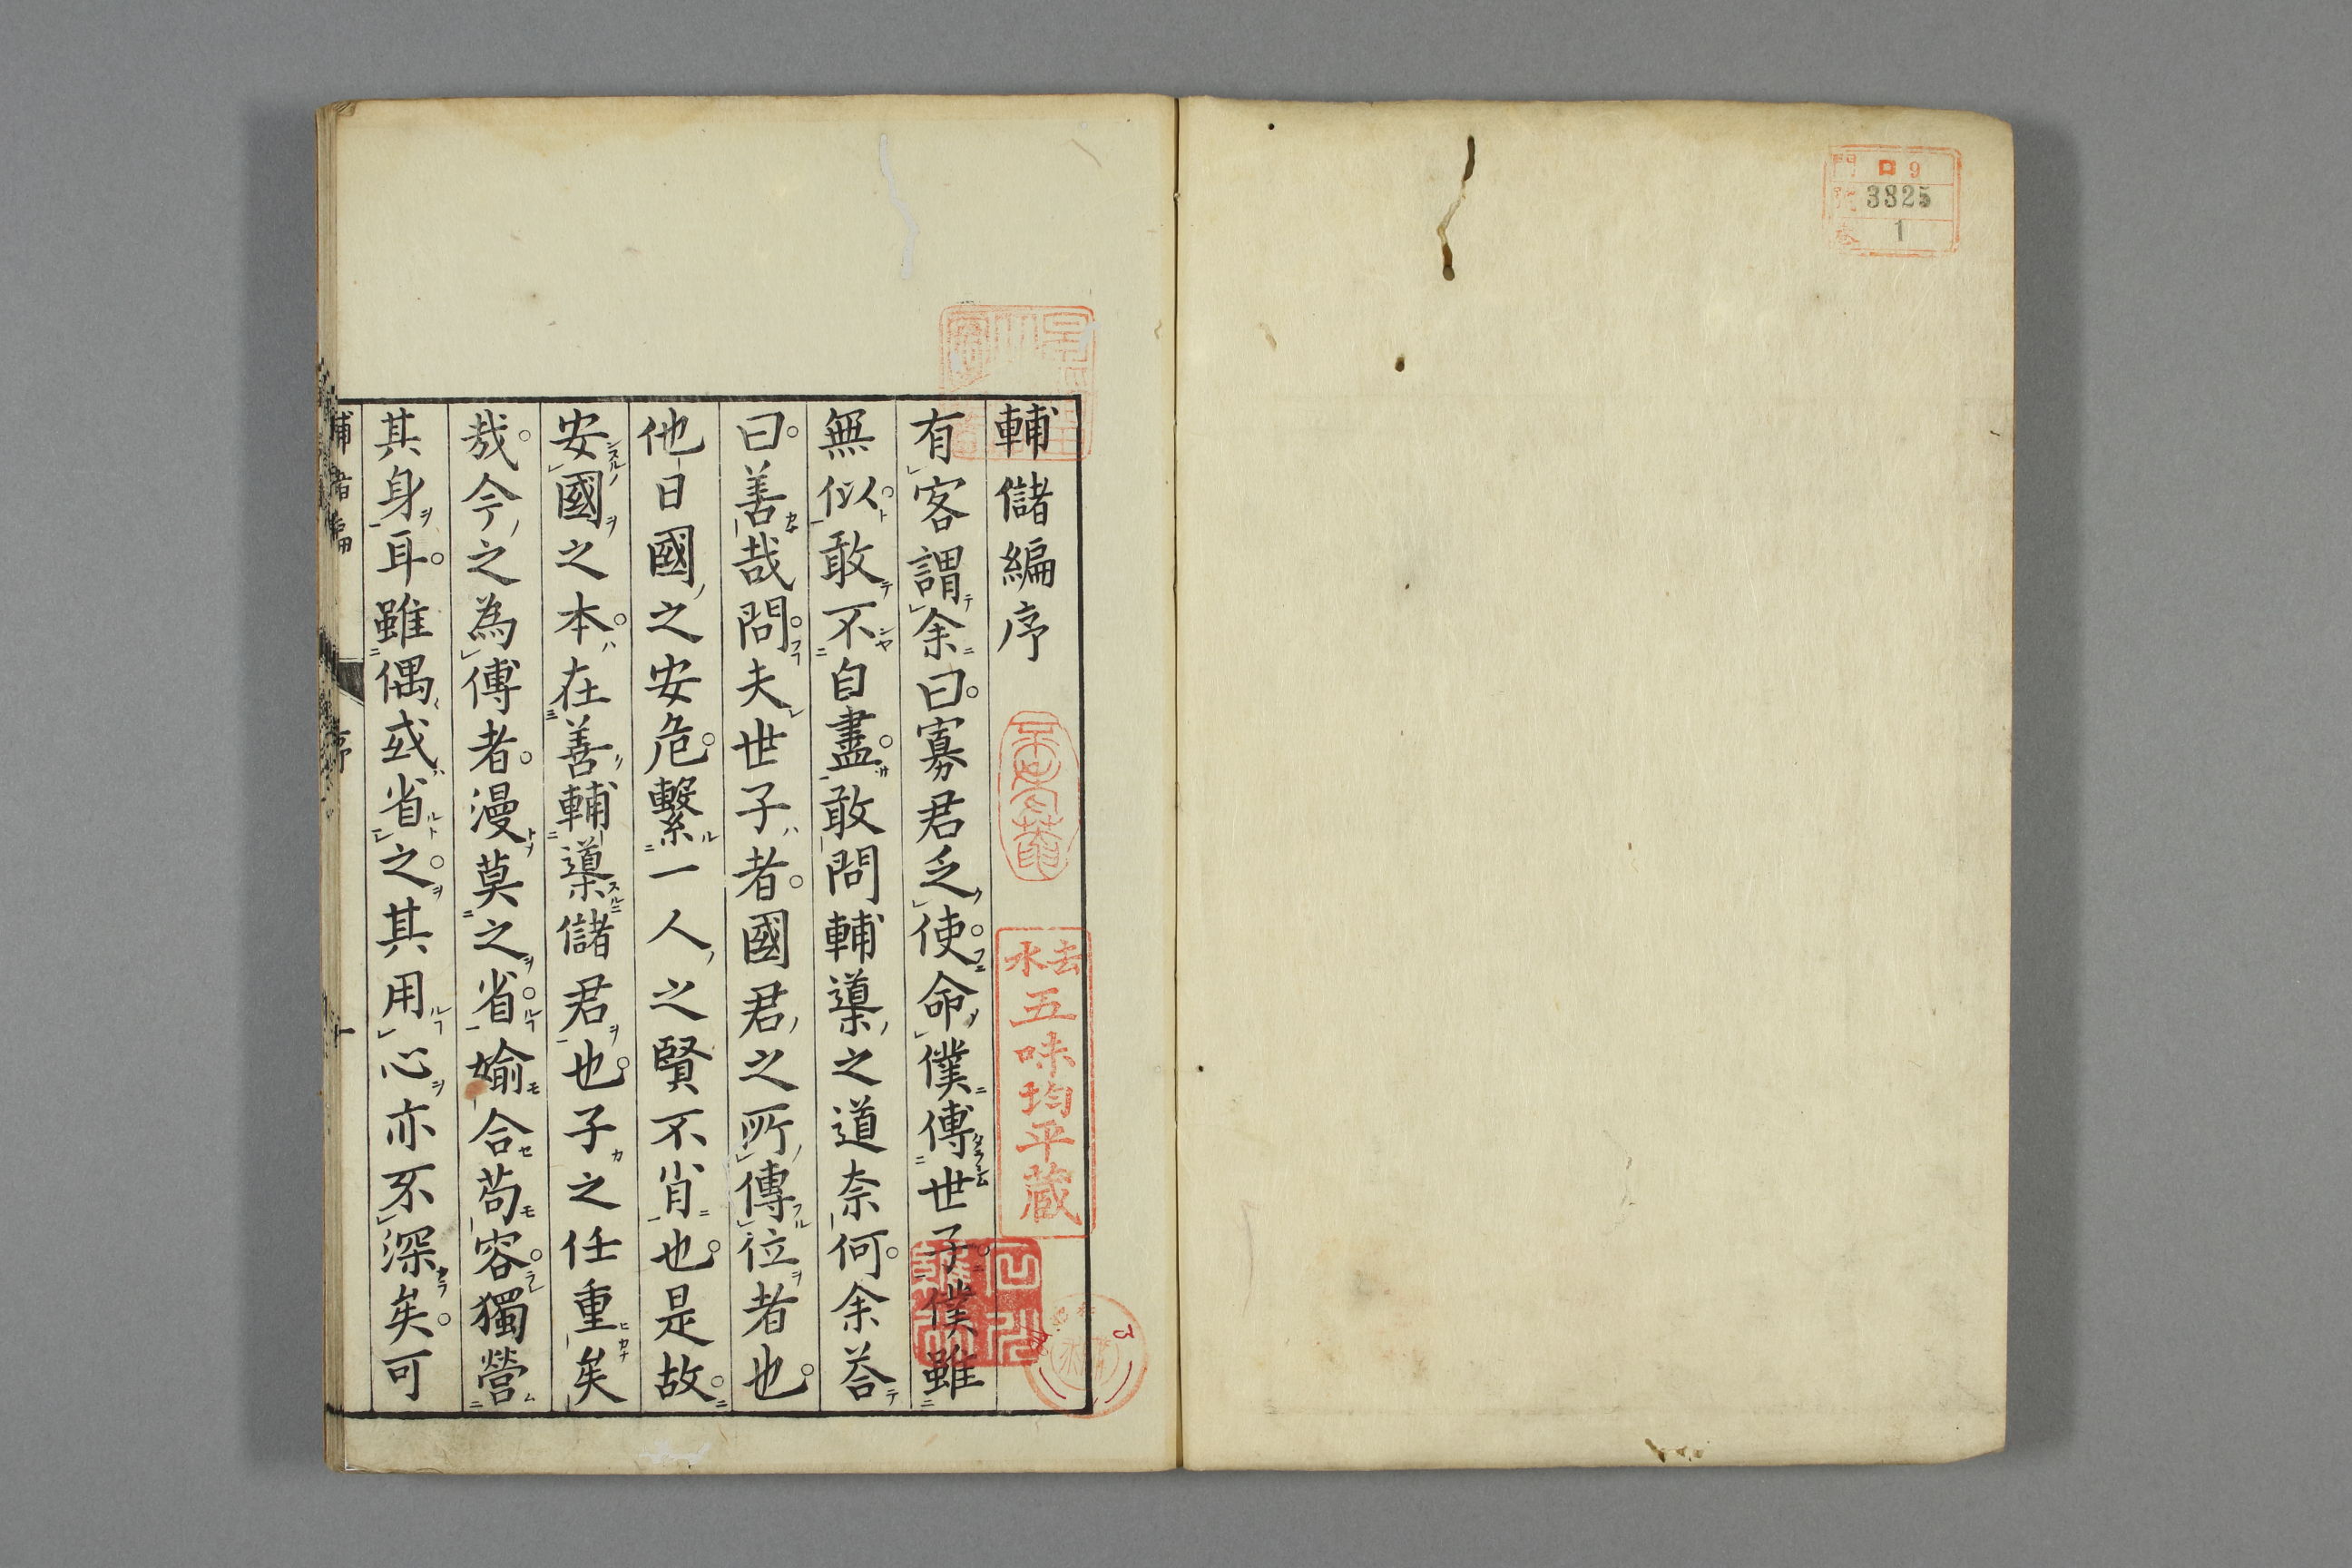 門 ロ 9
號 3825
巻 1
輔儲編序
有客謂余曰寡君乏使命僕傅世子僕雖
無似敢不自盡敢問輔導之道奈何余荅
曰善哉問夫世子者國君之所傳位者也
他日國之安危繫一人之賢不肖也是故
安國之本在善輔導儲君也子之任重矣
哉今之為傅者漫莫之省媮合苟容獨營
其身耳雖偶或省之其用心亦不深矣可
去水
五味均平蔵
輔儲編 序 一